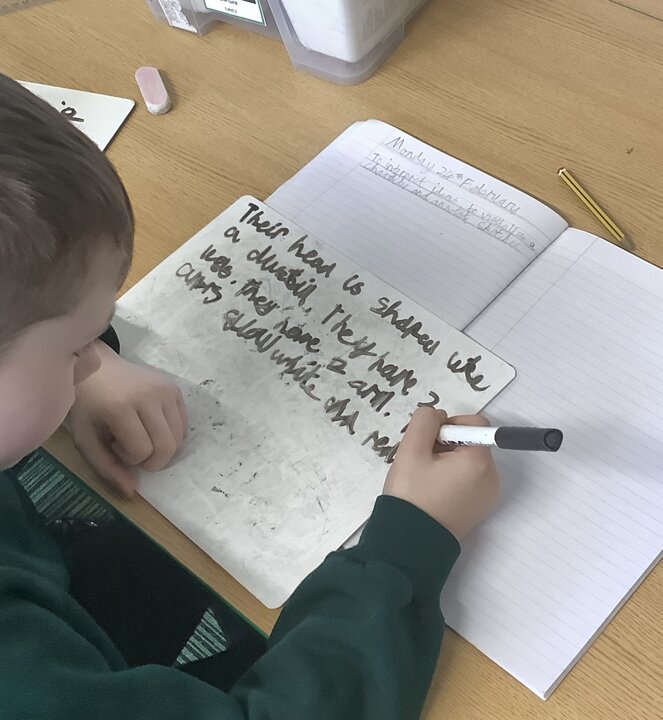 Their head is shaped like
a dustbin. They have 2
legs. They have 2 arm.
arms
yellow white and red
Monday 24th February
To interpret ideas to visualise a
character and